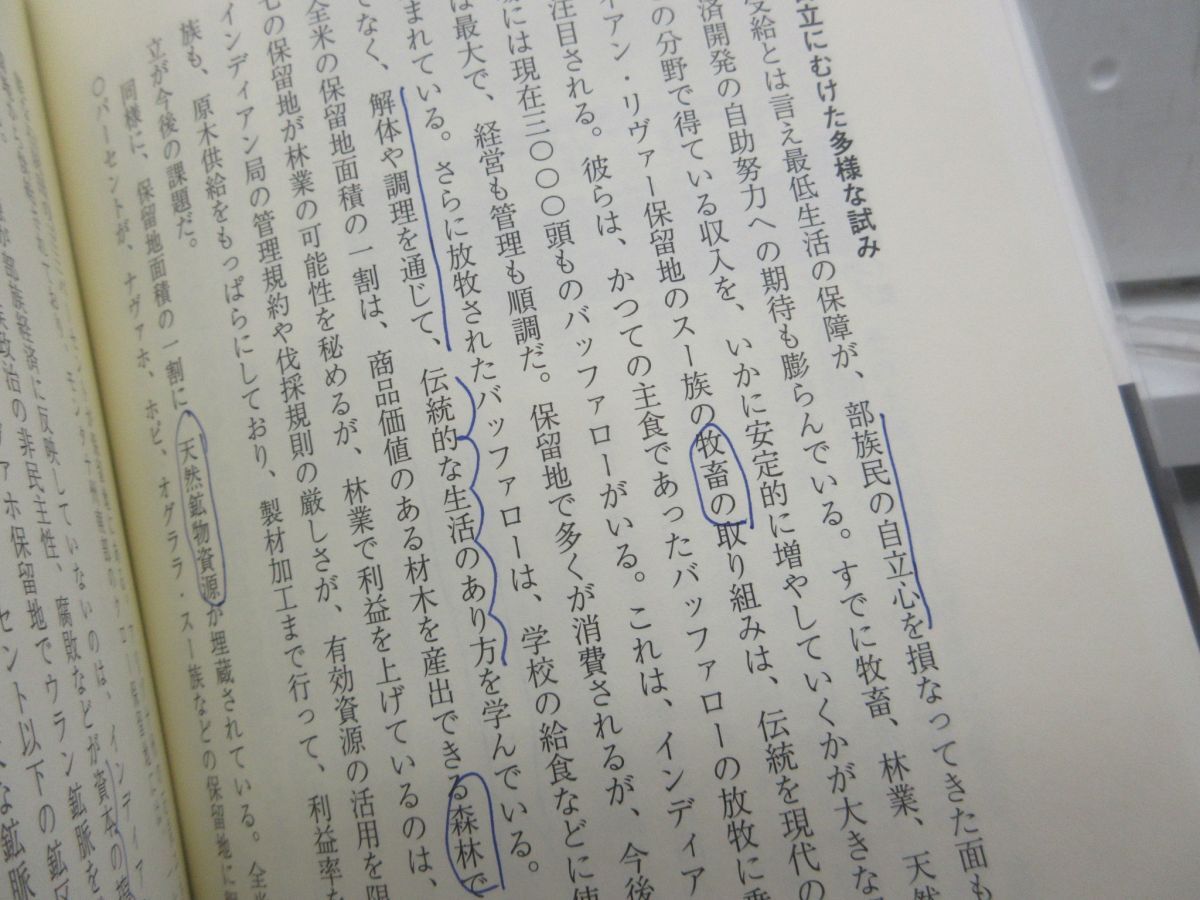 立にむけた多様な試み
受給とは言え最低生活の保障が、部族民の自立心を損なってきた面も
済開発の自助努力への期待も膨らんでいる。すでに牧畜、林業、天然
の分野で得ている収入を、いかに安定的に増やしていくかが大きな
アン・リヴァー保留地のスー族の牧畜の取り組みは、伝統を現代の
注目される。彼らは、かつての主食であったバッファローの放牧に乗
には現在三〇〇〇頭ものバッファローがいる。これは、インディア
は最大で、経営も管理も順調だ。保留地で多くが消費されるが、今後
まれている。さらに放牧されたバッファローは、学校の給食などに使
でなく、解体や調理を通じて、伝統的な生活のあり方を学んでいる。
全米の保留地面積の一割は、商品価値のある材木を産出できる森林で
の保留地が林業の可能性を秘めるが、林業で利益を上げているのは、
インディアン局の管理規約や伐採規則の厳しさが、有効資源の活用を阻
族も、原木供給をもっぱらにしており、製材加工まで行って、利益率を
立が今後の課題だ。
同様に、保留地面積の一割に、天然鉱物資源が埋蔵されている。全米
〇パーセントが、ナヴァホ、ホピ、オグララ・スー族などの保留地に
部族経済に反映していないのは、インディア
族政治の非民主性、腐敗などが資本の
ァホ保留地でウラン鉱脈を
セント以下の鉱区
な鉱脈